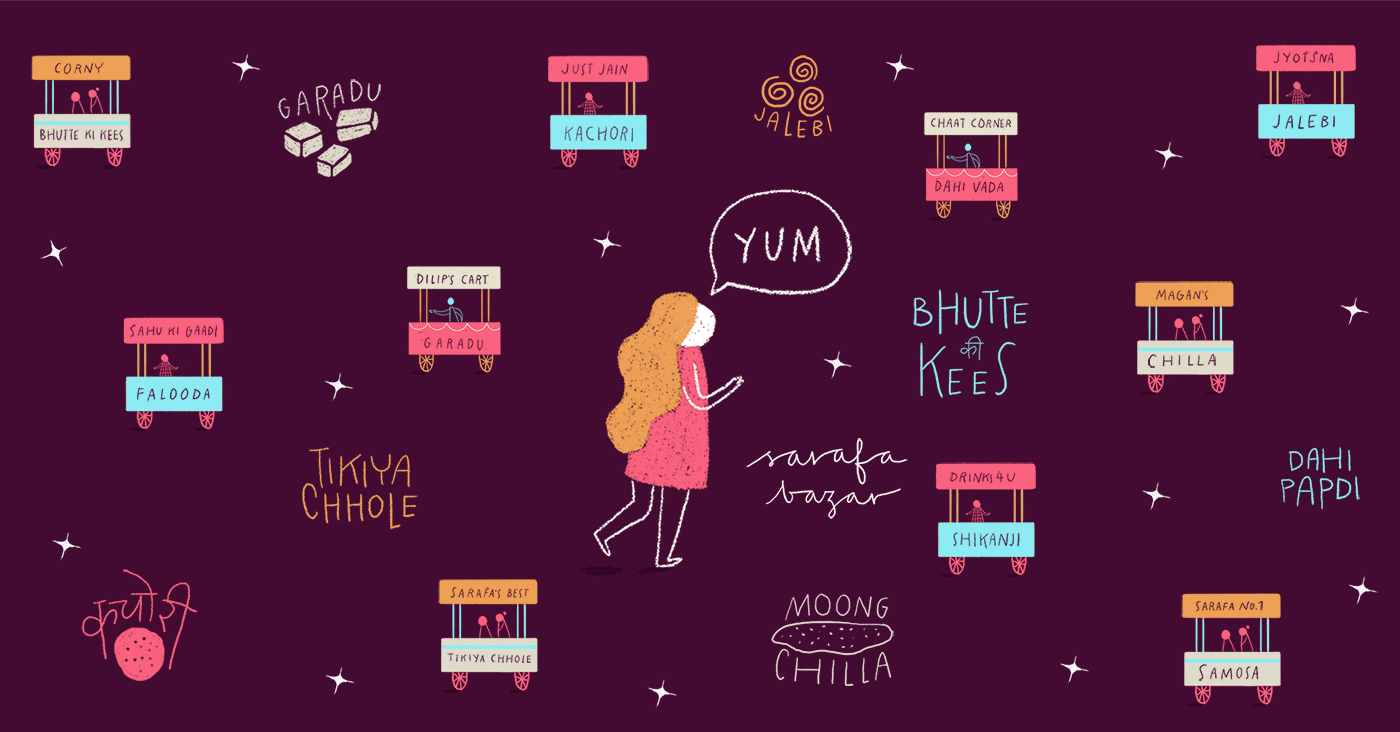 CORNY
BHUTTE KI KEES
GARADU
JUST JAIN
KACHORI
JALEBI
CHAAT CORNER
DAHI VADA
JYOTSNA
JALEBI
YUM
SAHU KI GAADI
FALOODA
DILIP'S CART
GARADU
BHUTTE
की
KEES
MAGAN'S
CHILLA
TIKIYA
CHHOLE
sarafa
bazar
DRINKS4U
SHIKANJI
DAHI
PAPDI
कचोरी
SARAFA'S BEST
TIKIYA CHHOLE
MOONG
CHILLA
SARAFA NO.1
SAMOSA